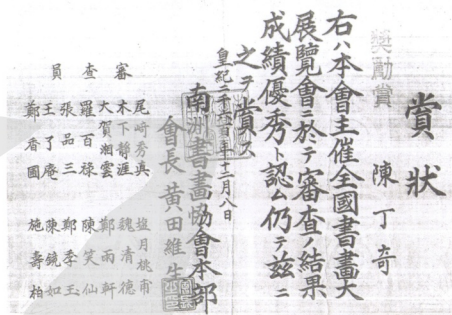 賞狀
奬勵賞
陳丁奇
右ハ本會主催全國書畫大
展覽會ニ於テ審査ノ結果
成績優秀ト認ム仍テ茲ニ
之ヲ賞ス
皇紀二千六百年十二月八日
南洲書畫協會本部
會長黄田維生
審查員
尾崎秀真
木下靜涯
大賀湘雲
羅百祿
張品三
王了庵
鄭香圃
塩月桃甫
魏清德
鄭雨軒
陳笑仙
鄭李玉
陳鏡如
施壽柏